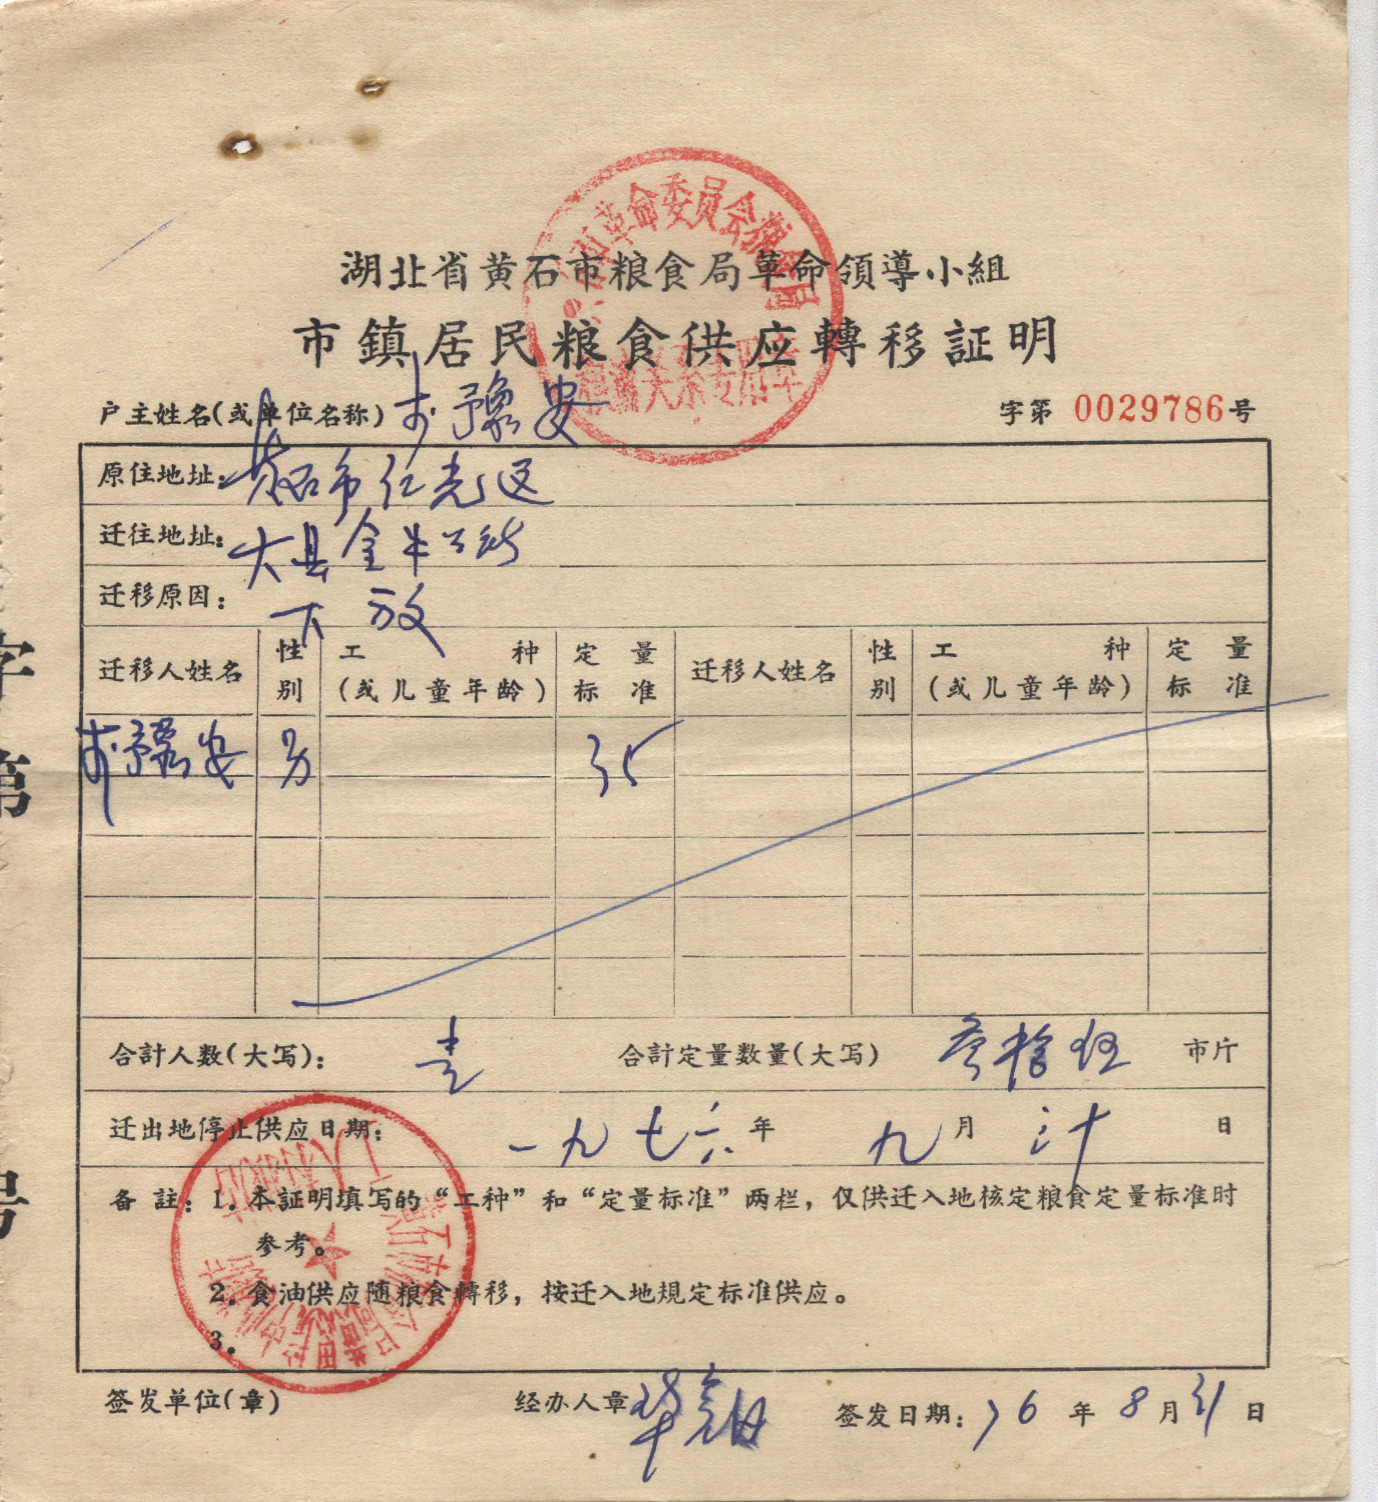 湖北省黄石市粮食局革命領导小組
市鎮居民粮食供应轉移証明
户主姓名(或单位名称) 予豫安
字第 0029786号
原住地址: 黄石市红光区
迁往地址: 大县金牛公所
迁移原因: 下放
迁移人姓名 性别 工种(或儿童年龄) 定量标准 迁移人姓名 性别 工种(或儿童年龄) 定量标准
豫安 男 35
合計人数(大写): 壹 合計定量数量(大写) 叁拾伍 市斤
迁出地停止供应日期: 一九七六年 九月 三十 日
备註: 1. 本証明填写的“工种”和“定量标准”两栏，仅供迁入地核定粮食定量标准时
参考。
2. 食油供应随粮食轉移，按迁入地規定标准供应。
3.
签发单位(章) 经办人章 签发日期: 76年8月31日
字第
号
革命委员会粮食局
粮油关系专用章